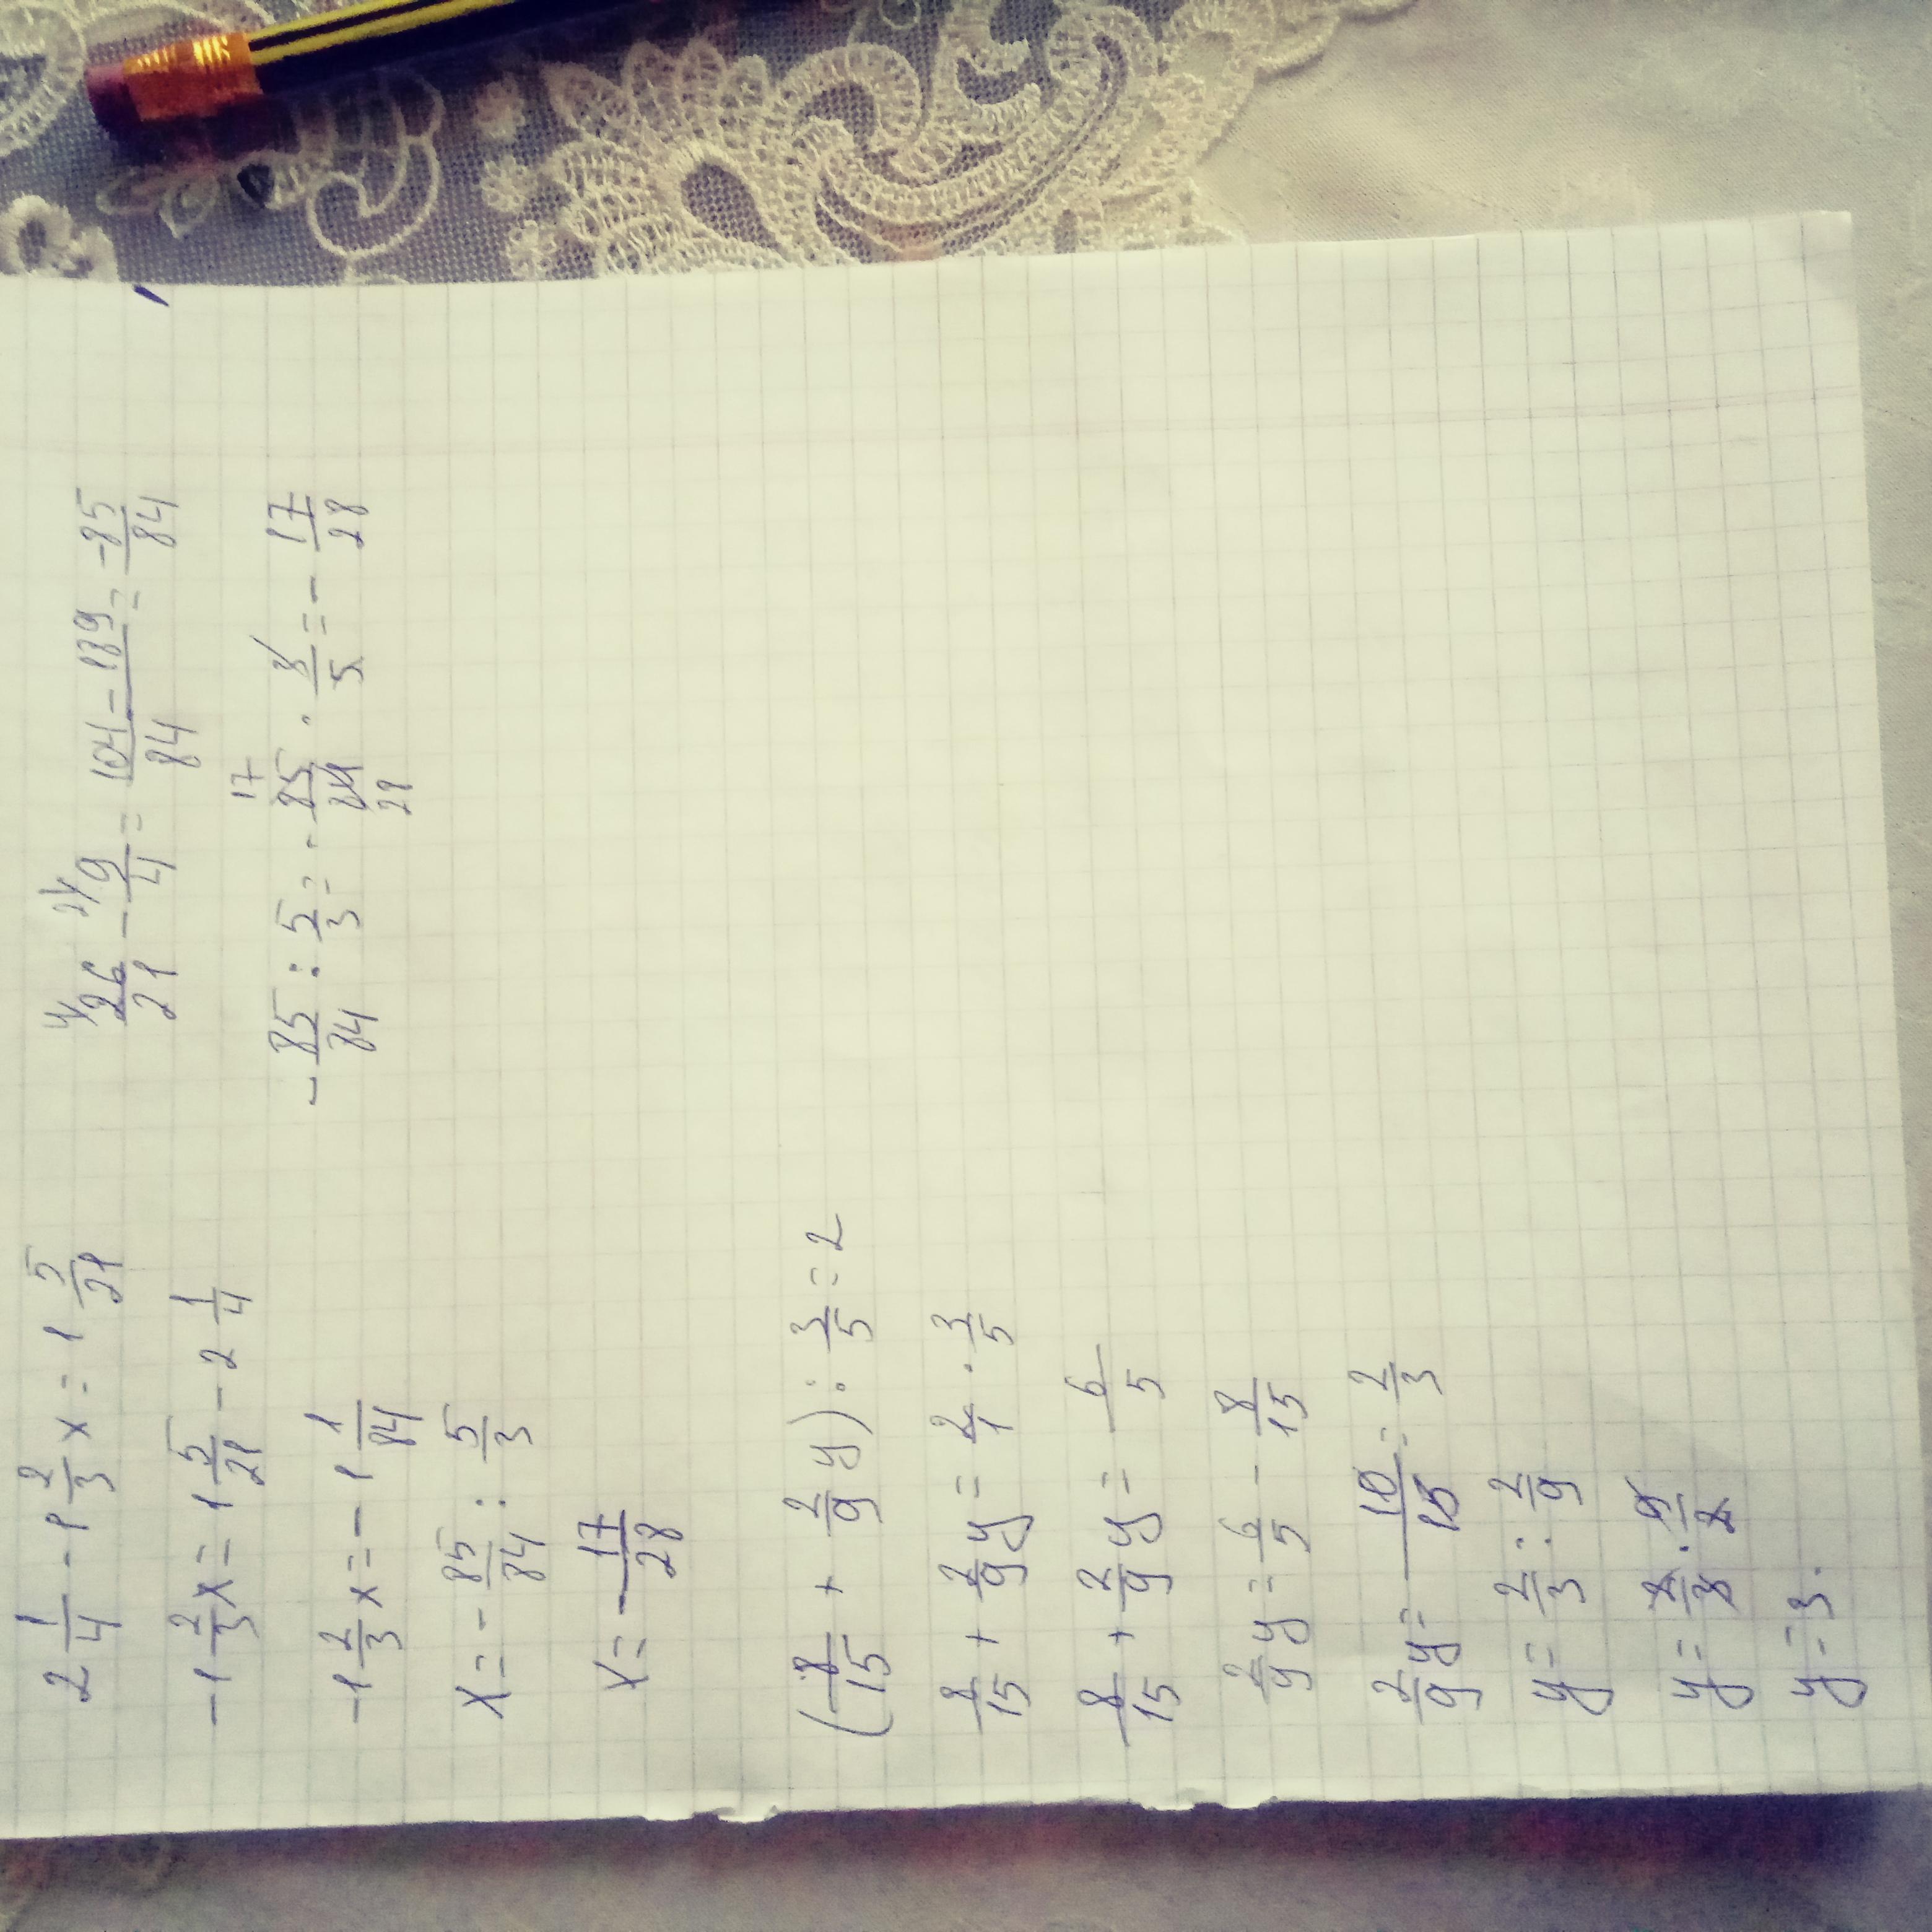 2 1/4 - 1 2/3 x = 1 5/21
-1 2/3 x = 1 5/21 - 2 1/4
-1 2/3 x = -1 1/84
x = - 85/84 : 5/3
x = - 17/28
4/ 26/21 - 21/ 9/4 = 104-189/84 = -85/84
- 85/84 : 5/3 = - 85/84 · 3/5 = - 17/28
17
28
(8/15 + 2/9 y) : 3/5 = 2
8/15 + 2/9 y = 2/1 · 3/5
8/15 + 2/9 y = 6/5
2/9 y = 6/5 - 8/15
2/9 y = 10/15 = 2/3
y = 2/3 : 2/9
y = 2/3 · 9/2
y = 3.